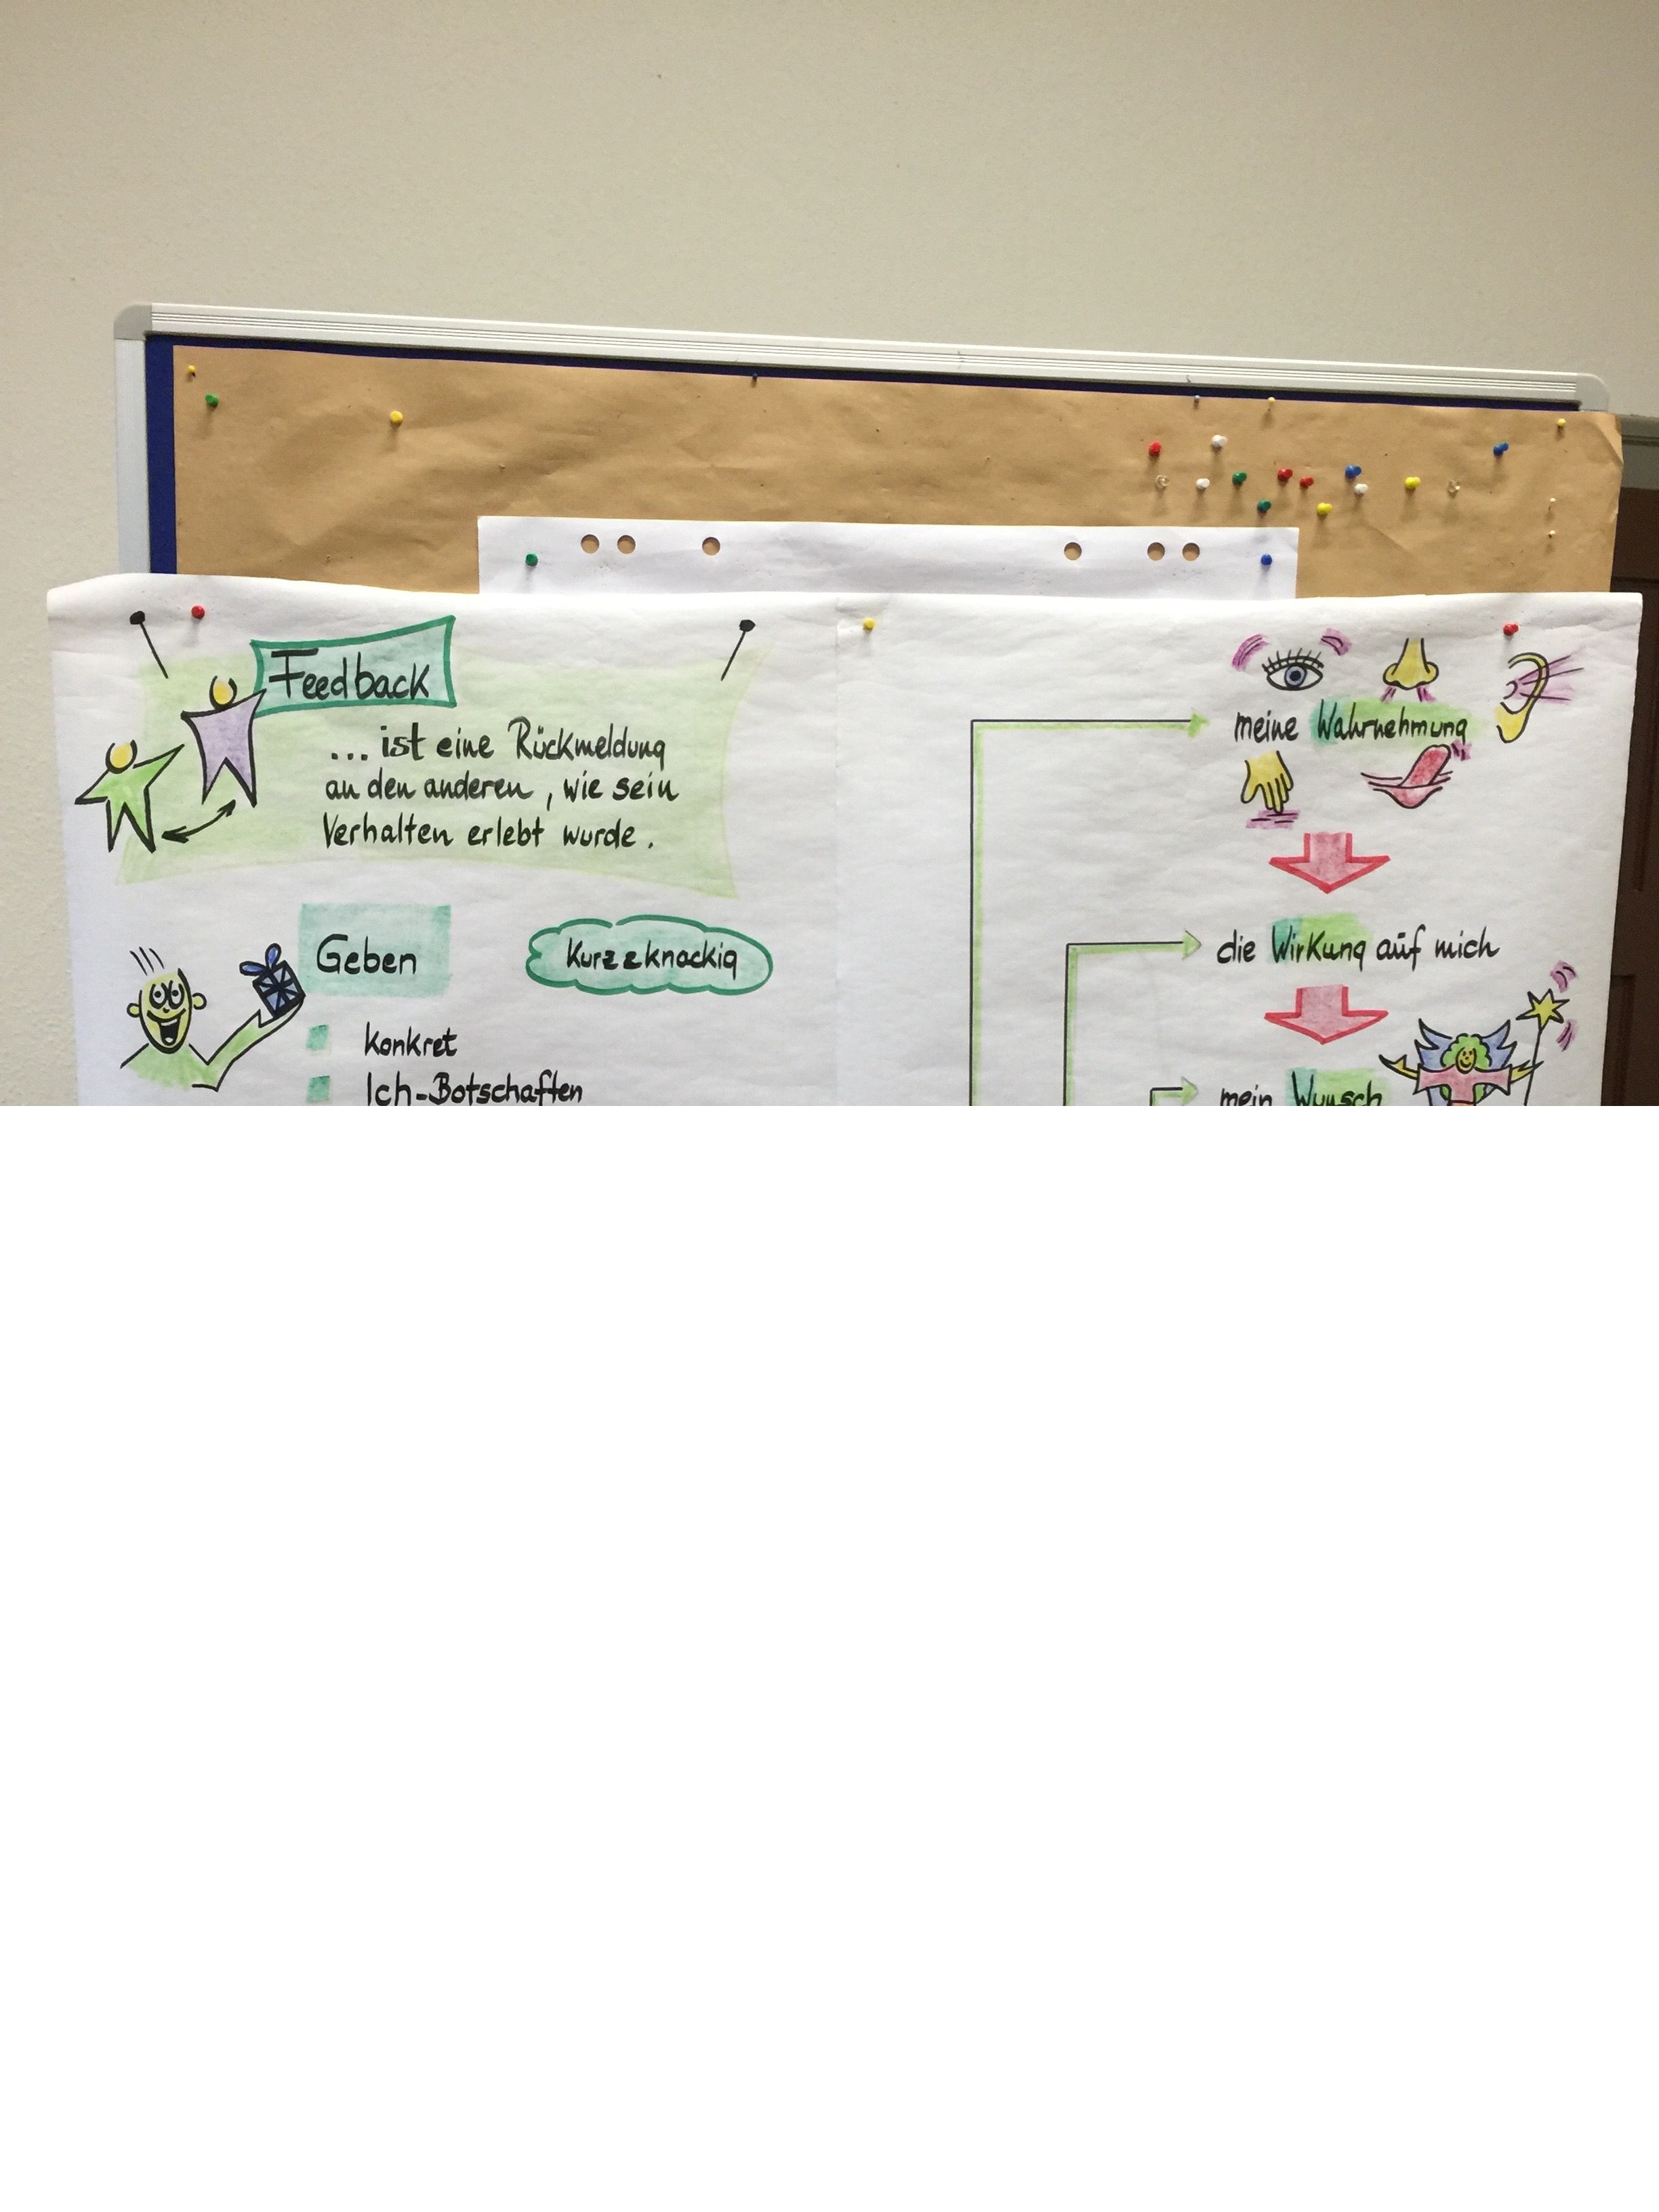 Feedback
... ist eine Rückmeldung
an den anderen, wie sein
Verhalten erlebt wurde.
Geben
Kurz & knackig
Konkret
Ich-Botschaften
meine Wahrnehmung
die Wirkung auf mich
mein Wunsch